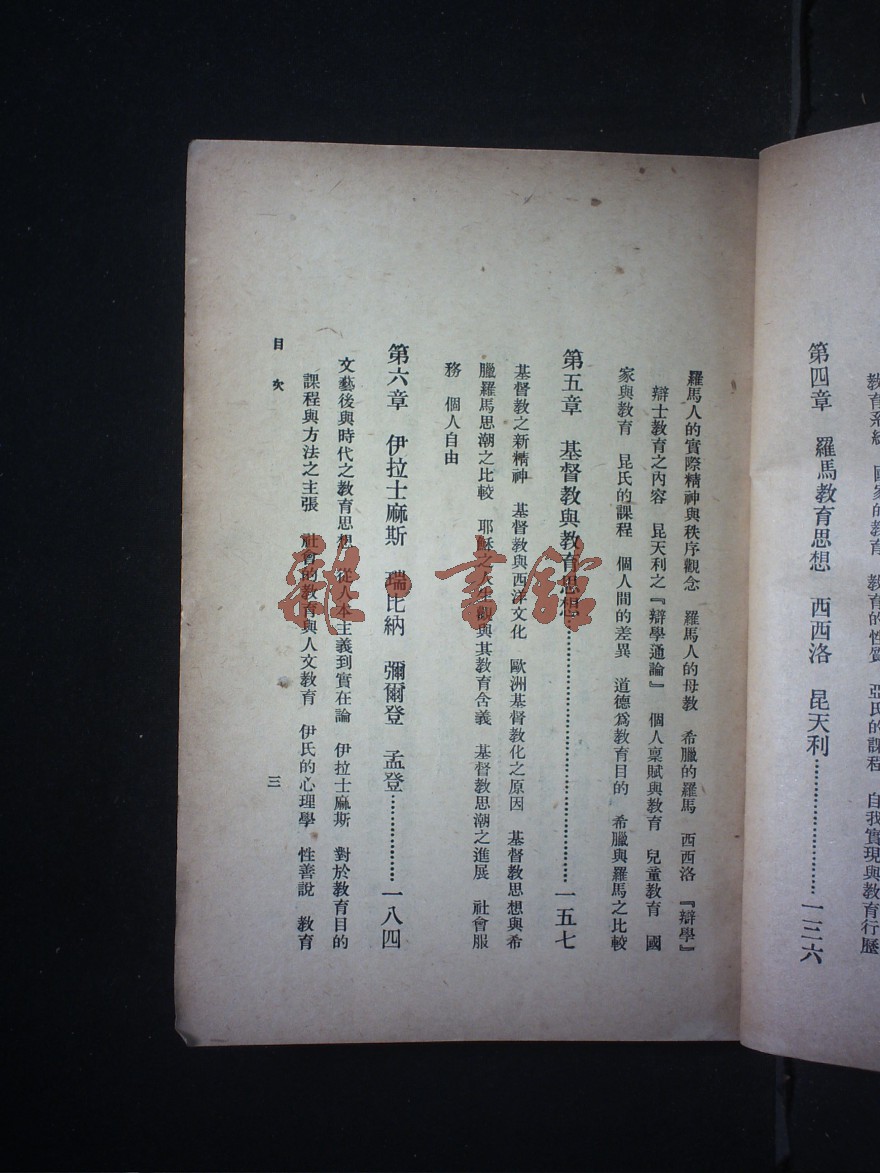 教育系統　國家的教育　教育的性質　亞氏的課程　自我實現與教育行歷
第四章　羅馬教育思想　西西洛　昆天利……………一三六
羅馬人的實際精神與秩序觀念　羅馬人的母教　希臘的羅馬　西西洛『辯學』
辯士教育之內容　昆天利之『辯學通論』　個人稟賦與教育　兒童教育　國
家與教育　昆氏的課程　個人間的差異　道德爲教育目的　希臘與羅馬之比較
第五章　基督教與教育思想……………一五七
基督教之新精神　基督教與西洋文化　歐洲基督教化之原因　基督教思想與希
臘羅馬思潮之比較　耶穌之人生觀與其教育含義　基督教思潮之進展　社會服
務　個人自由
第六章　伊拉士麻斯　瑞比納　彌爾登　孟登……………一八四
文藝後與時代之教育思想　從人本主義到實在論　伊拉士麻斯　對於教育目的
課程與方法之主張　社會的教育與人文教育　伊氏的心理學　性善說　教育
目次
三
雜·書館